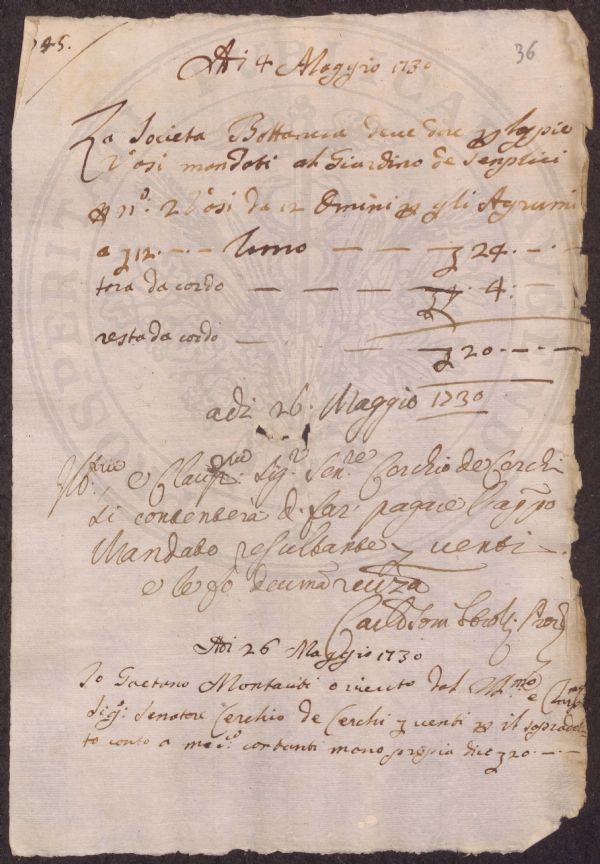 345.
36
Adi 4 Maggio 1730
La Societa Bottanica deve dare p
Vasi mandati al Giardino de Senplici
p nº. 2 Vasi da 12 Omini p gli Agrumi
a ʒ 12. — . — l'uno — — ʒ 24. — . —
tara da cordo — — — — 4: —
resta da cordo — . — — ʒ 20 — . — . —
adi 26. Maggio 1730
Ill. e Clariss. Sig.r Sen.re Cerchio de Cerchi
si contenterà di far pagare l'
Mandato resultante ʒ venti — .
e le fò
Adi 26 Maggio 1730
Io Gaetano Montauti o riceuto dal Ill.mo e
Sig.r Senatore Cerchio de Cerchi ʒ venti p il sopradet-
to conto a me contanti mano propia dico ʒ 20 — . —